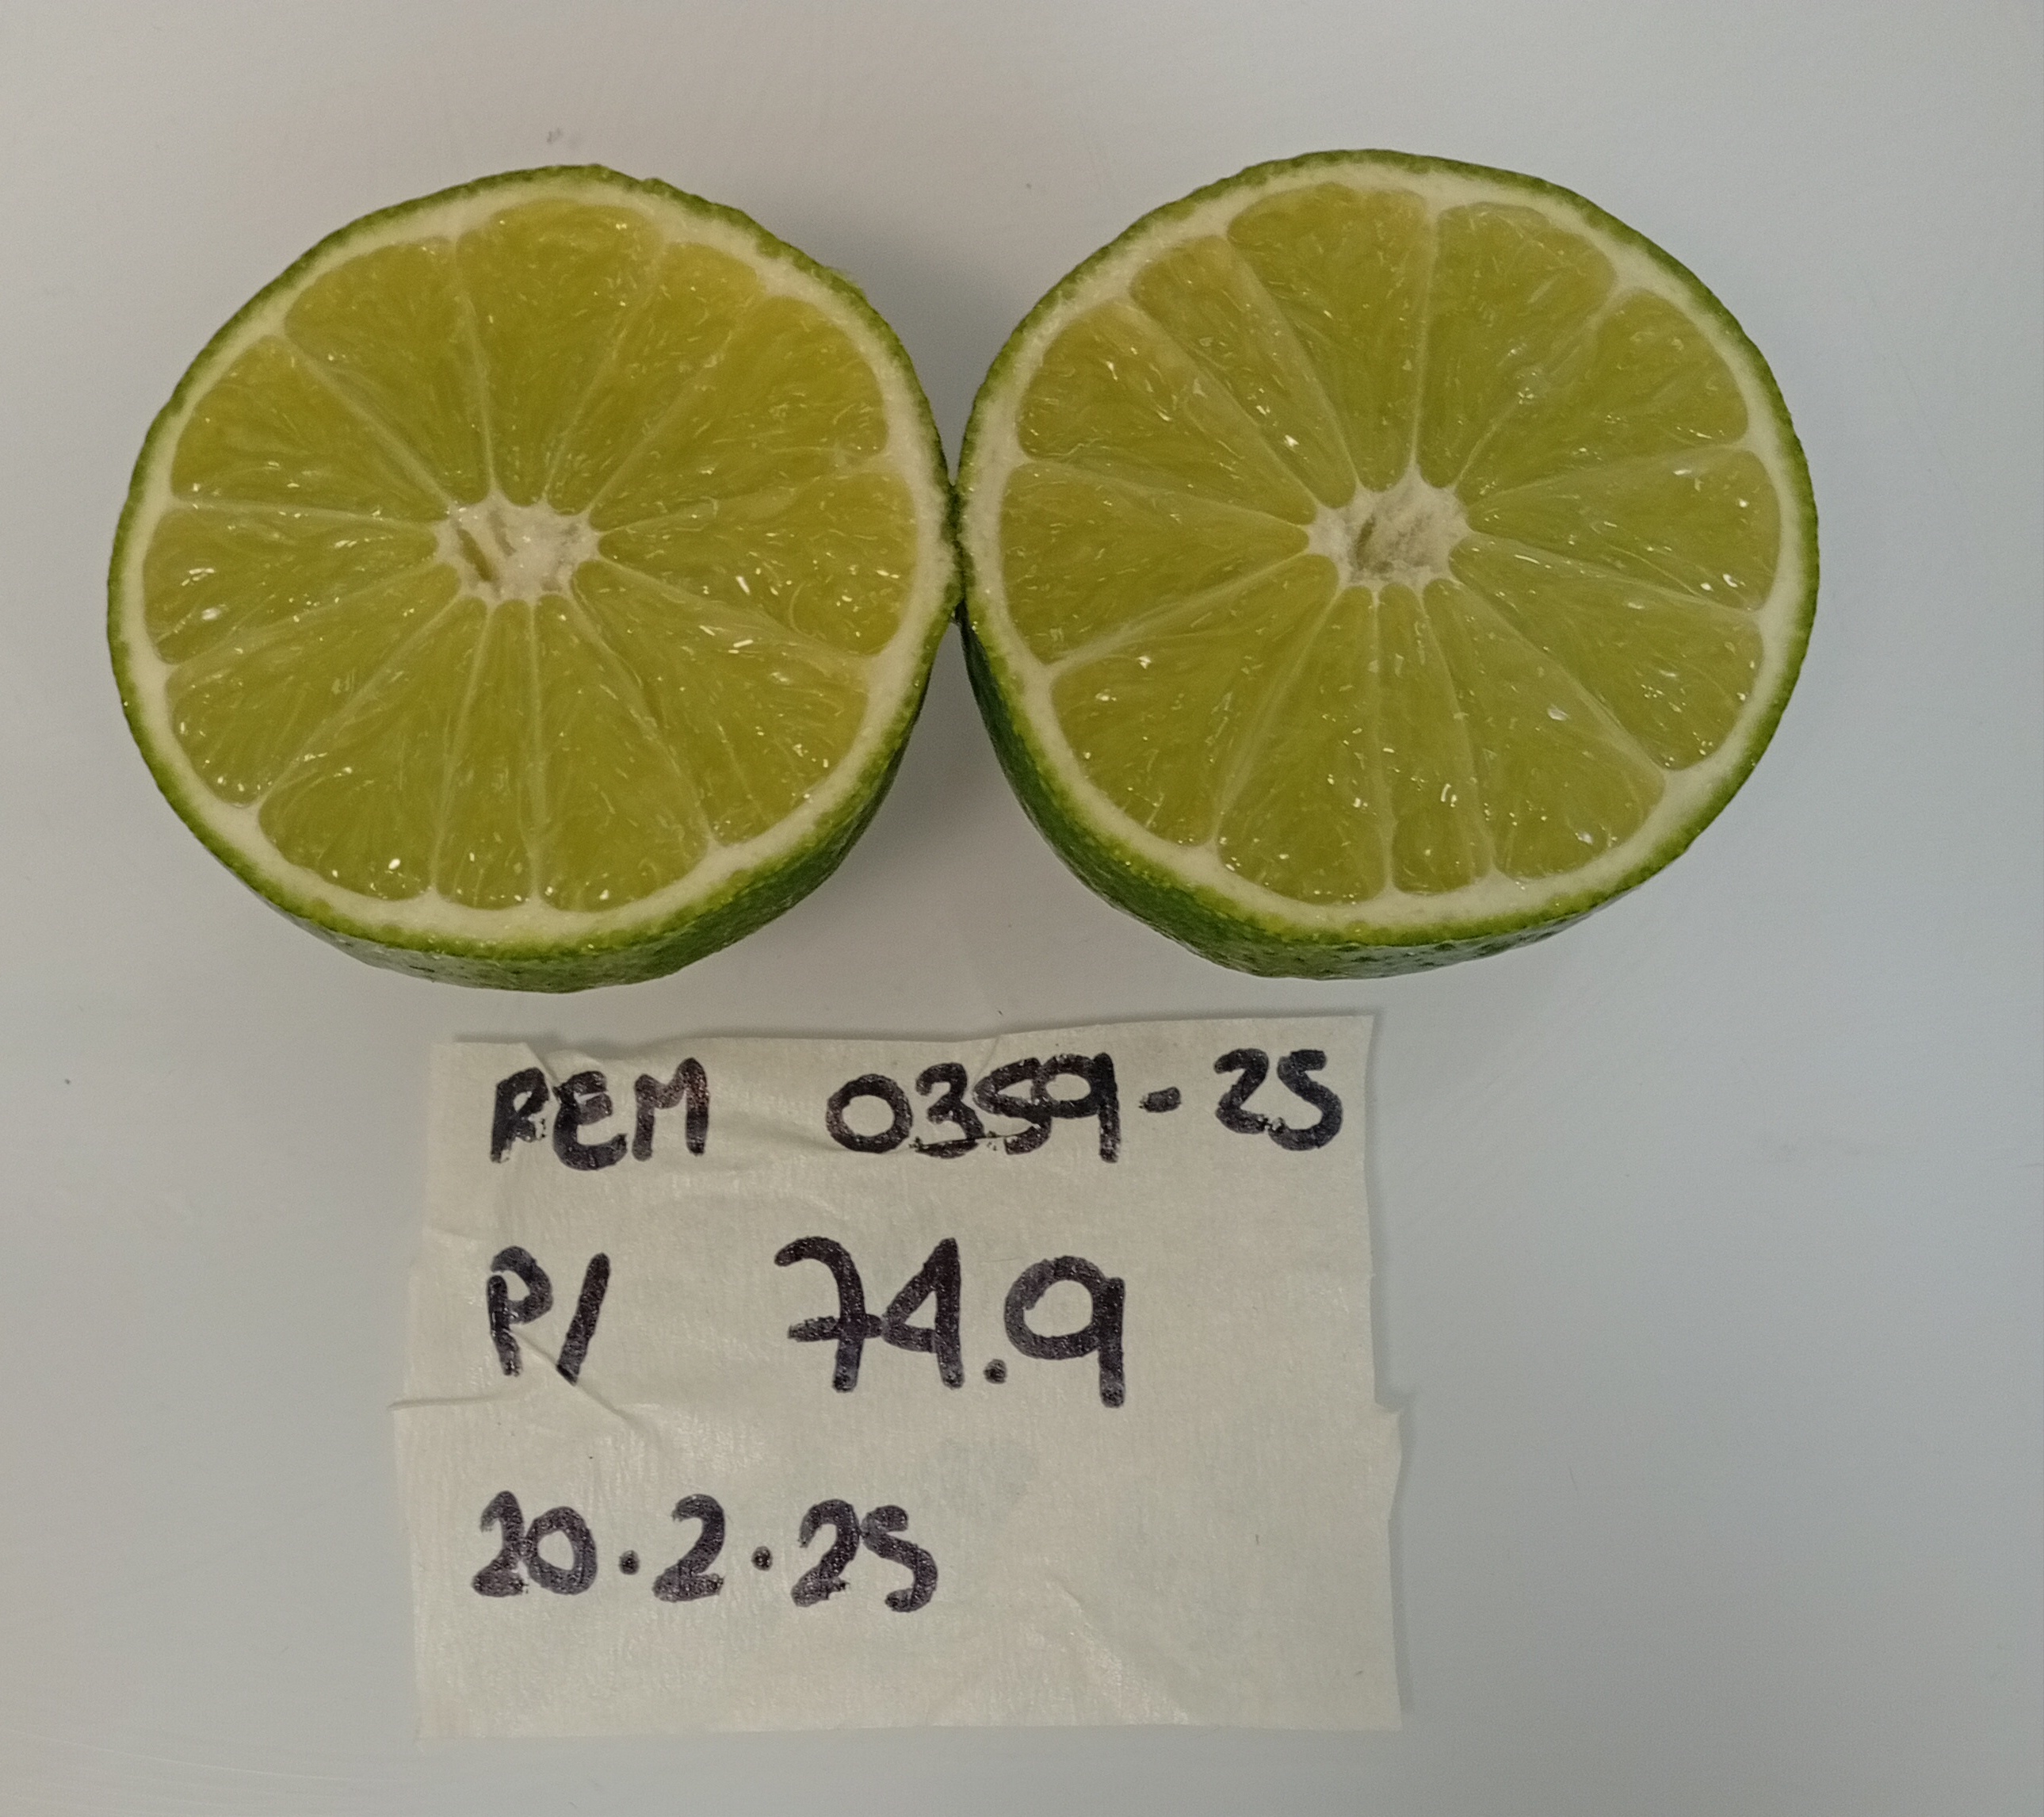 REM 0359-25
P/ 74.9
20.2.25